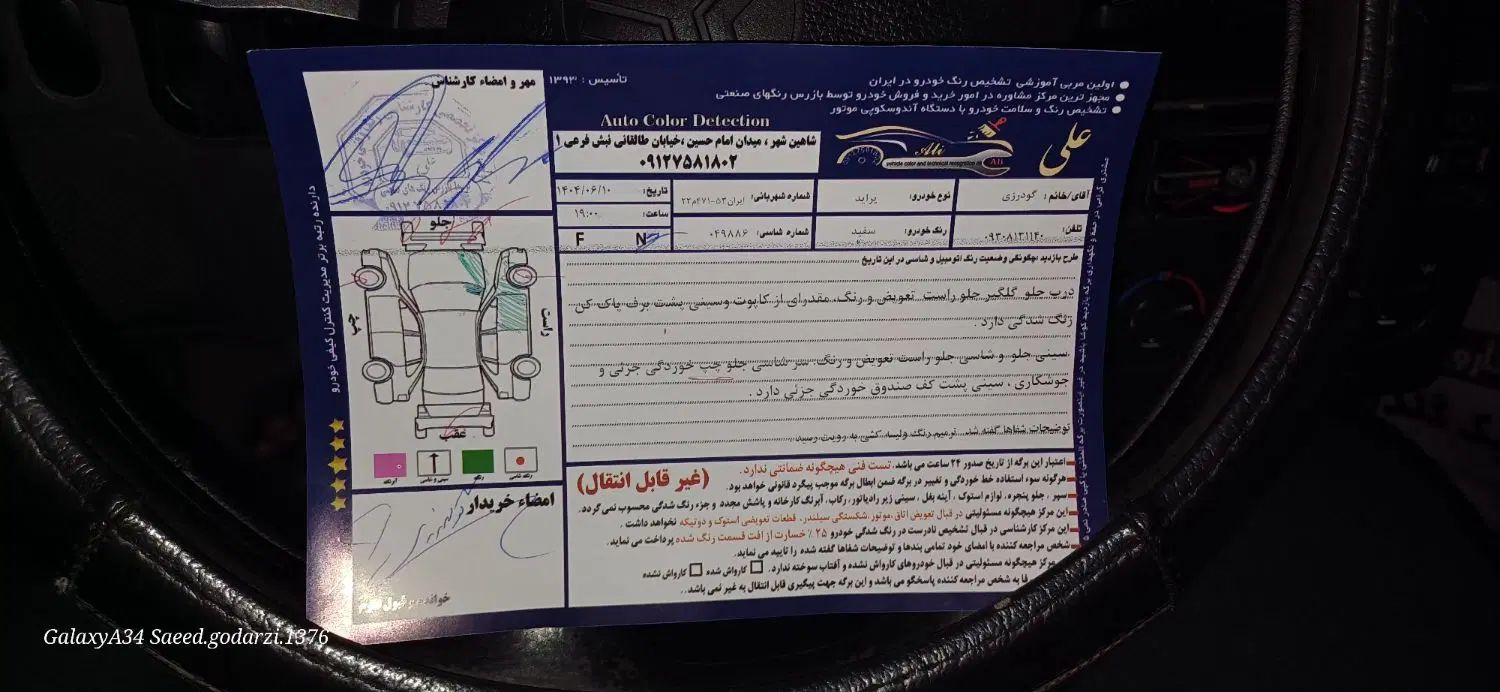 اولین مربی آموزشی تشخیص رنگ خودرو در ایران
مجهز ترین مرکز مشاوره در امور خرید و فروش خودرو توسط بازرس رنگهای صنعتی
تشخیص رنگ و سلامت خودرو با دستگاه آندوسکوپی موتور
تأسیس : ۱۳۹۳
مهر و امضاء کارشناس
Auto Color Detection
شاهین شهر ، میدان امام حسین ،خیابان طالقانی نبش فرعی ۱
۰۹۱۲۷۵۸۱۸۰۲
علی
Ali
vehicle color and technical recognition
Ali
آقای/خانم : گودرزی
نوع خودرو: پراید
شماره شهربانی: ایران۵۳-۴۷۱م۲۲
تاریخ: ۱۴۰۴/۰۶/۱۰
تلفن: ۰۹۳۰۸۱۳۱۱۴۰
رنگ خودرو: سفید
شماره شاسی: ۰۴۹۸۸۶
ساعت: ۱۹:۰۰
F N
طرح بازدید :چگونگی وضعیت رنگ اتومبیل و شاسی در این تاریخ
درب جلو گلگیر جلو راست تعویض و رنگ، مقدرای از کاپوت وسینی پشت برف پاک کن
رنگ شدگی دارد .
سینی جلو و شاسی جلو راست تعویض و رنگ سر شاسی جلو چپ خوردگی جزئی و
جوشکاری ، سینی پشت کف صندوق خوردگی جزئی دارد .
توضیحات شفاها گفته شد. ترمیم رنگ ولیسه کشی به رویت رسید
جلو
راست
چپ
عقب
رنگ شاسی
رنگ
سینی و شاسی
آبرنگ
امضاء خریدار
اعتبار این برگه از تاریخ صدور ۲۴ ساعت می باشد، تست فنی هیچگونه ضمانتی ندارد.
(غیر قابل انتقال)
هرگونه سوء استفاده خط خوردگی و تغییر در برگه ضمن ابطال برگه موجب پیگرد قانونی خواهد بود.
سپر ، جلو پنجره، لوازم استوک ، آینه بغل ، سینی زیر رادیاتور، رکاب، آبرنگ کارخانه و پاشش مجدد و جزء رنگ شدگی محسوب نمی گردد.
این مرکز هیچگونه مسئولیتی در قبال تعویض اتاق،موتور،شکستگی سیلندر، قطعات تعویضی استوک و دوتیکه نخواهد داشت .
این مرکز کارشناسی در قبال تشخیص نادرست در رنگ شدگی خودرو ۲۵ ٪ خسارت از افت قسمت رنگ شده پرداخت می نماید.
شخص مراجعه کننده با امضای خود تمامی بندها و توضیحات شفاها گفته شده را تایید می نماید.
مرکز هیچگونه مسئولیتی در قبال خودروهای کارواش نشده و آفتاب سوخته ندارد. کارواش شده کارواش نشده
به شخص مراجعه کننده پاسخگو می باشد و این برگه جهت پیگیری قابل انتقال به غیر نمی باشد..
دارنده رتبه برتر مدیریت کنترل کیفی خودرو
GalaxyA34 Saeed.godarzi.1376